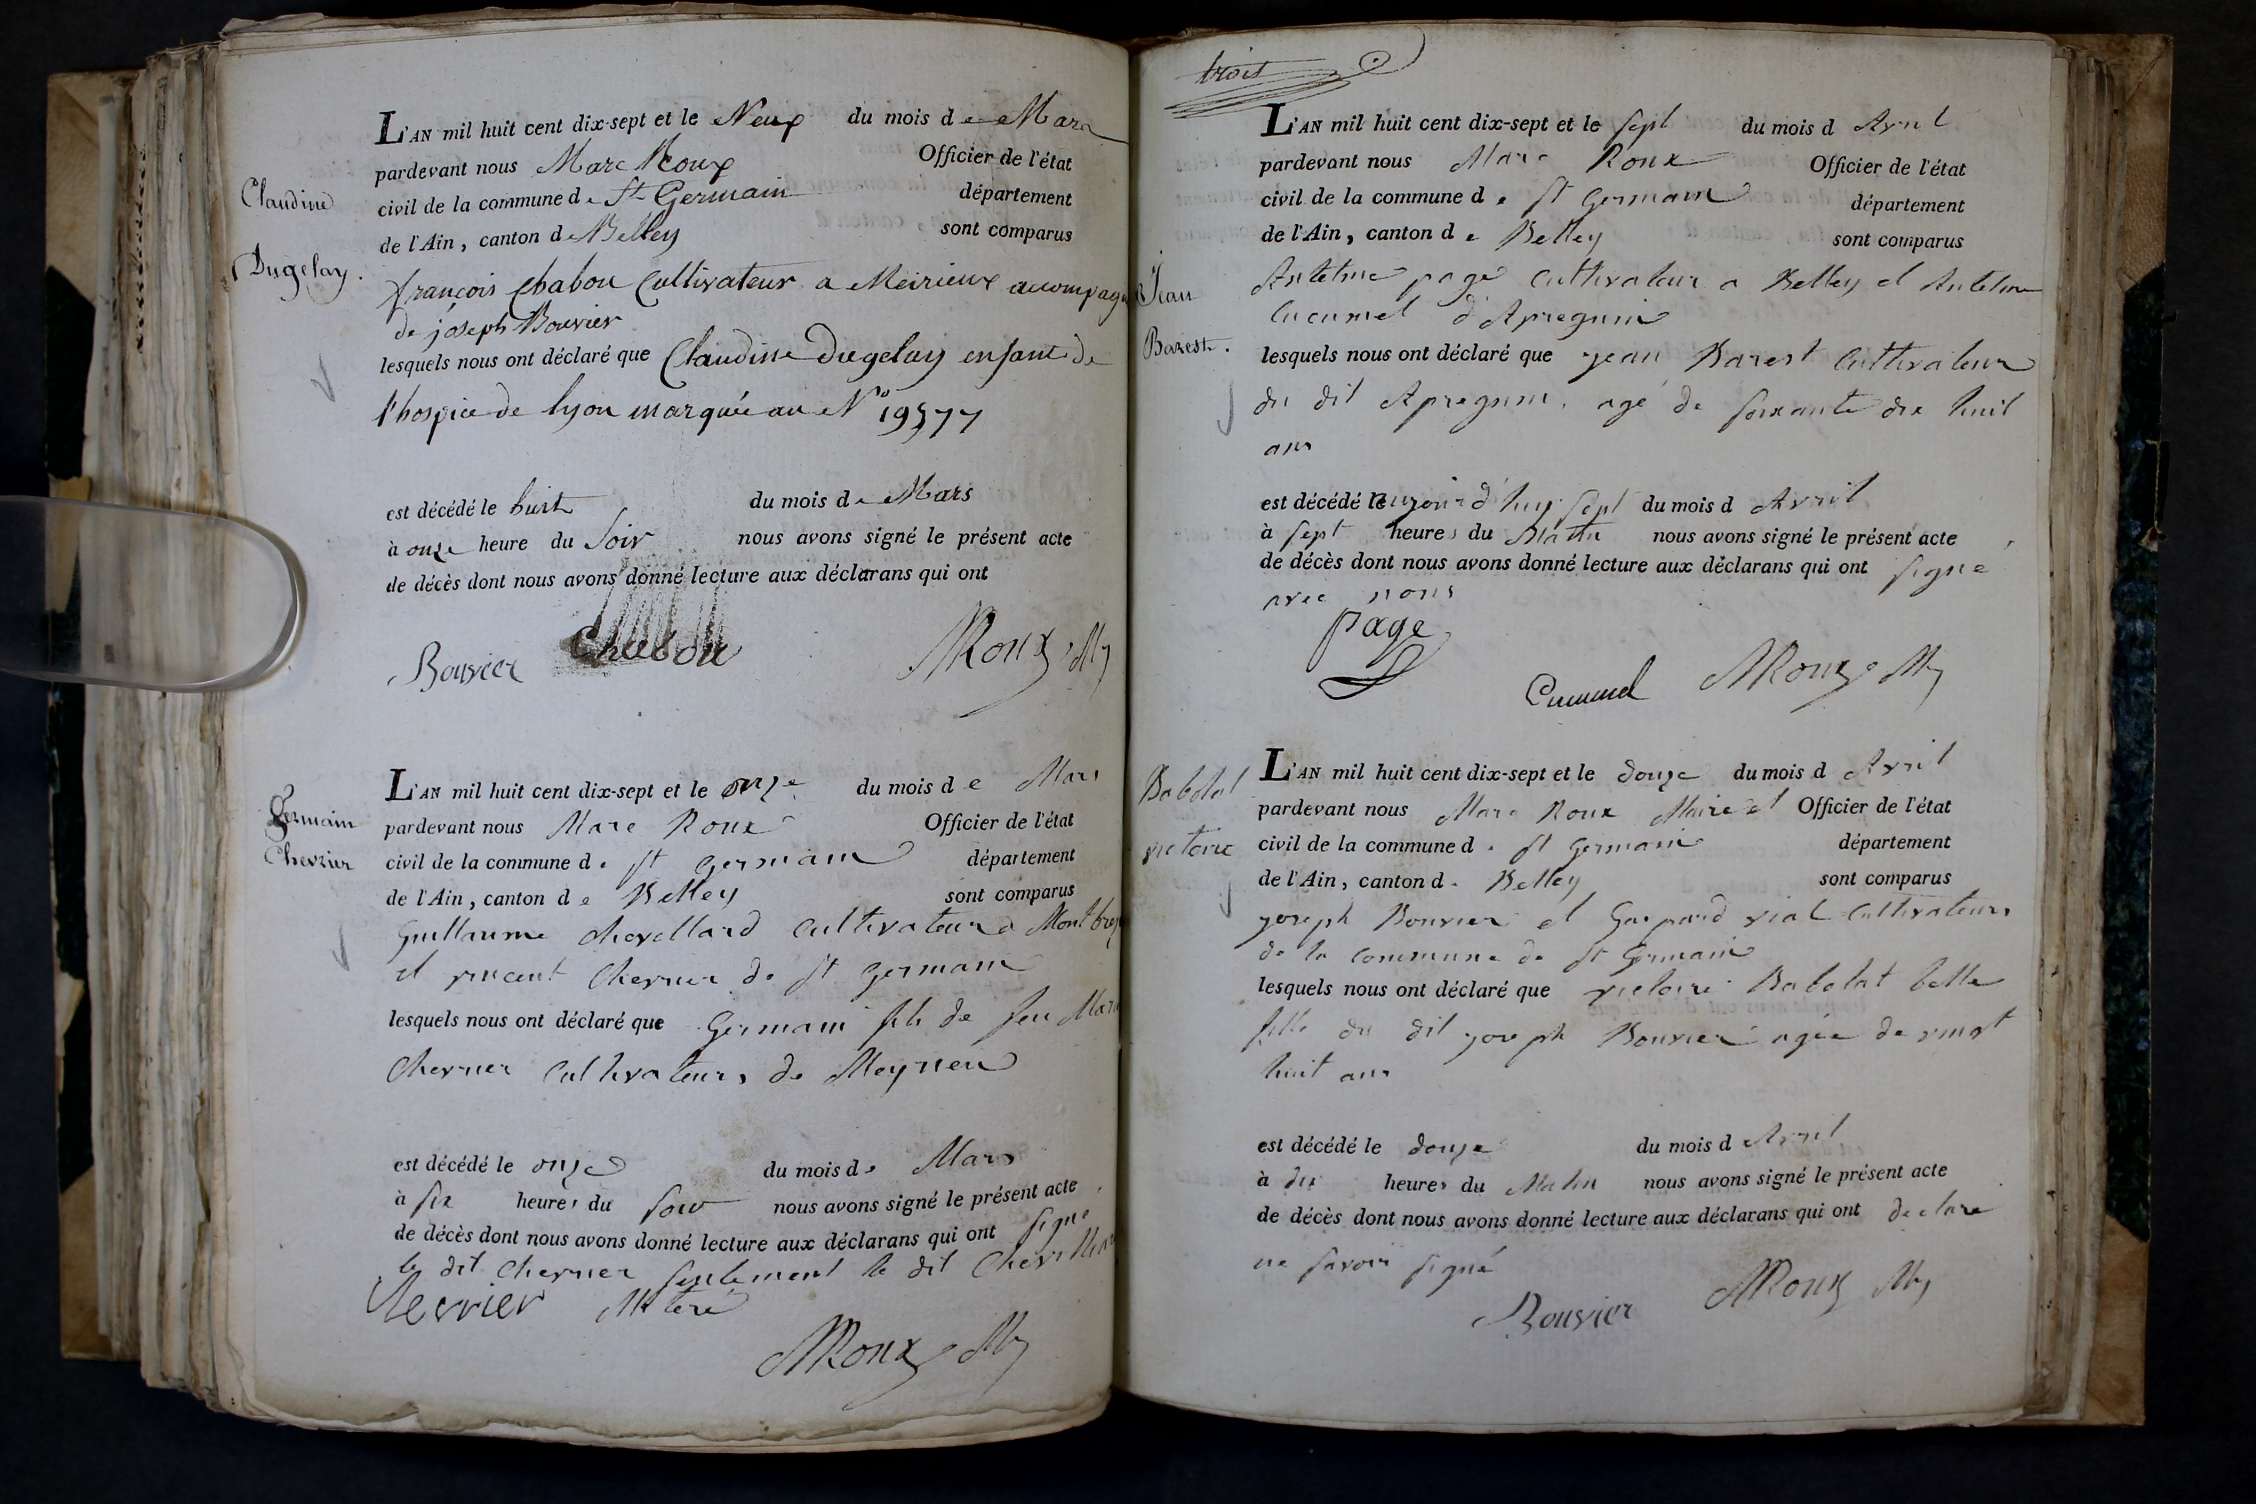 L'AN mil huit cent dix-sept et le Neuf du mois de Mars
pardevant nous Marc Roux Officier de l'état
civil de la commune de St Germain département
de l'Ain, canton de Belley sont comparus
Claudine
Dugelay.
françois Chabou Cultivateur a Meirieux accompagné
de joseph Bouvier
lesquels nous ont déclaré que Claudine Dugelay enfant de
l'hospice de lyon marquée au No 19577
est décédé le huit du mois de Mars
à onze heure du Soir nous avons signé le présent acte
de décès dont nous avons donné lecture aux déclarans qui ont
Bouvier Chabou MRoux My
Germain
Chevrier
L'AN mil huit cent dix-sept et le onze du mois de Mars
pardevant nous Marc Roux Officier de l'état
civil de la commune de St Germain département
de l'Ain, canton de Belley sont comparus
Guillaume chevellard cultivateur a
et vincent Chevrier de St germain
lesquels nous ont déclaré que Germain fils de feu
Chevrier cultivateurs de Meyrieu
est décédé le onze du mois de Mars
à six heures du soir nous avons signé le présent acte
de décès dont nous avons donné lecture aux déclarans qui ont signé
le dit Chevrier seulement le dit
Chevrier
MRoux My
trois
L'AN mil huit cent dix-sept et le sept du mois d Avril
pardevant nous Marc Roux Officier de l'état
civil de la commune de St Germain département
de l'Ain, canton de Belley sont comparus
Jean
Barest.
Antelme page cultivateur a Belley et Antelme
Cucumel d'Apregnin
lesquels nous ont déclaré que jean Barest cultivateur
du dit Apregnin, agé de soixante dix huit
ans
est décédé le aujourd'huy sept du mois d Avril
à sept heures du Matin nous avons signé le présent acte
de décès dont nous avons donné lecture aux déclarans qui ont signé
avec nous
page
Cucumel MRoux My
Babolat
victoire
L'AN mil huit cent dix-sept et le douze du mois d Avril
pardevant nous Marc Roux Maire et Officier de l'état
civil de la commune de St Germain département
de l'Ain, canton de Belley sont comparus
joseph Bouvier et Gaspard vial cultivateurs
de la commune de St Germain
lesquels nous ont déclaré que victoire Babolat belle
fille du dit joseph Bouvier agée de vingt
huit ans
est décédé le douze du mois d Avril
à dix heures du Matin nous avons signé le présent acte
de décès dont nous avons donné lecture aux déclarans qui ont declaré
ne savoir signé
Bouvier MRoux My